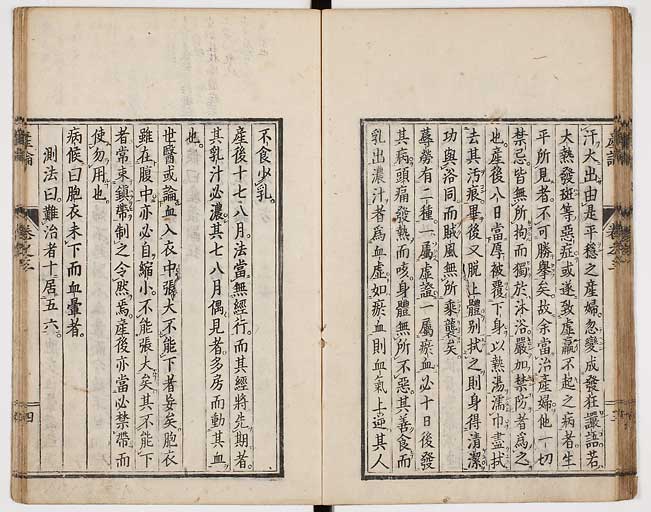 汗大出由是平穩之產婦忽變成發狂讝語若
大熱發斑等惡症或遂致虛羸不起之病者生
平所見者不可勝舉矣故余當治產婦他一切
禁忌皆無所拘而獨於沐浴嚴加禁防者為之
也產後八日當厚被覆下身以熱湯濡巾盡拭
去其汚痕畢後又脫上體別拭之則身得清潔
功與浴同而賊風無所乘襲矣
蓐勞有二種一屬虛證一屬瘀血必十日後發
其病頭痛發熱而咳身體無所不惡其善食而
乳出濃汁者為血虛如瘀血則血氣上逆其人
不食少乳
產後十七八月法當無經行而其經將先期者
其乳汁必濃其七八月偶見者多房而動其血
也
世醫或論血入衣中張大不能下者妄矣胞衣
雖在腹中亦必自縮小不能張大矣其不能下
者常束鎖帶制之令然焉產後亦當必禁帶而
使勿用也
病候曰胞衣未下而血暈者
測法曰難治者十居五六
產論
卷之三
四